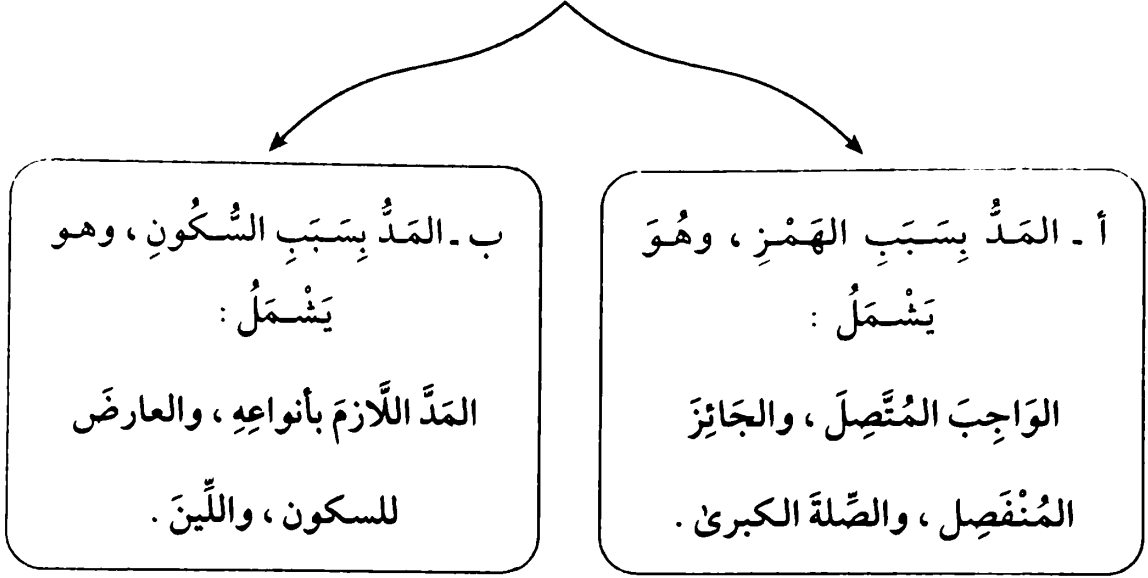 أ ـ المَـدُّ بِسَـبَبِ الهَمْـزِ ، وهُـوَ
يَشْـمَلُ :
الوَاجِبَ المُتَّصِلَ ، والجَائِزَ
المُنْفَصِل ، والصِّلةَ الكبرىٰ .
ب ـ المَـدُّ بِسَـبَبِ السُّـكُونِ ، وهـو
يَشْـمَلُ :
المَدَّ اللَّازمَ بأنواعِهِ ، والعارضَ
للسكون ، واللِّينَ .